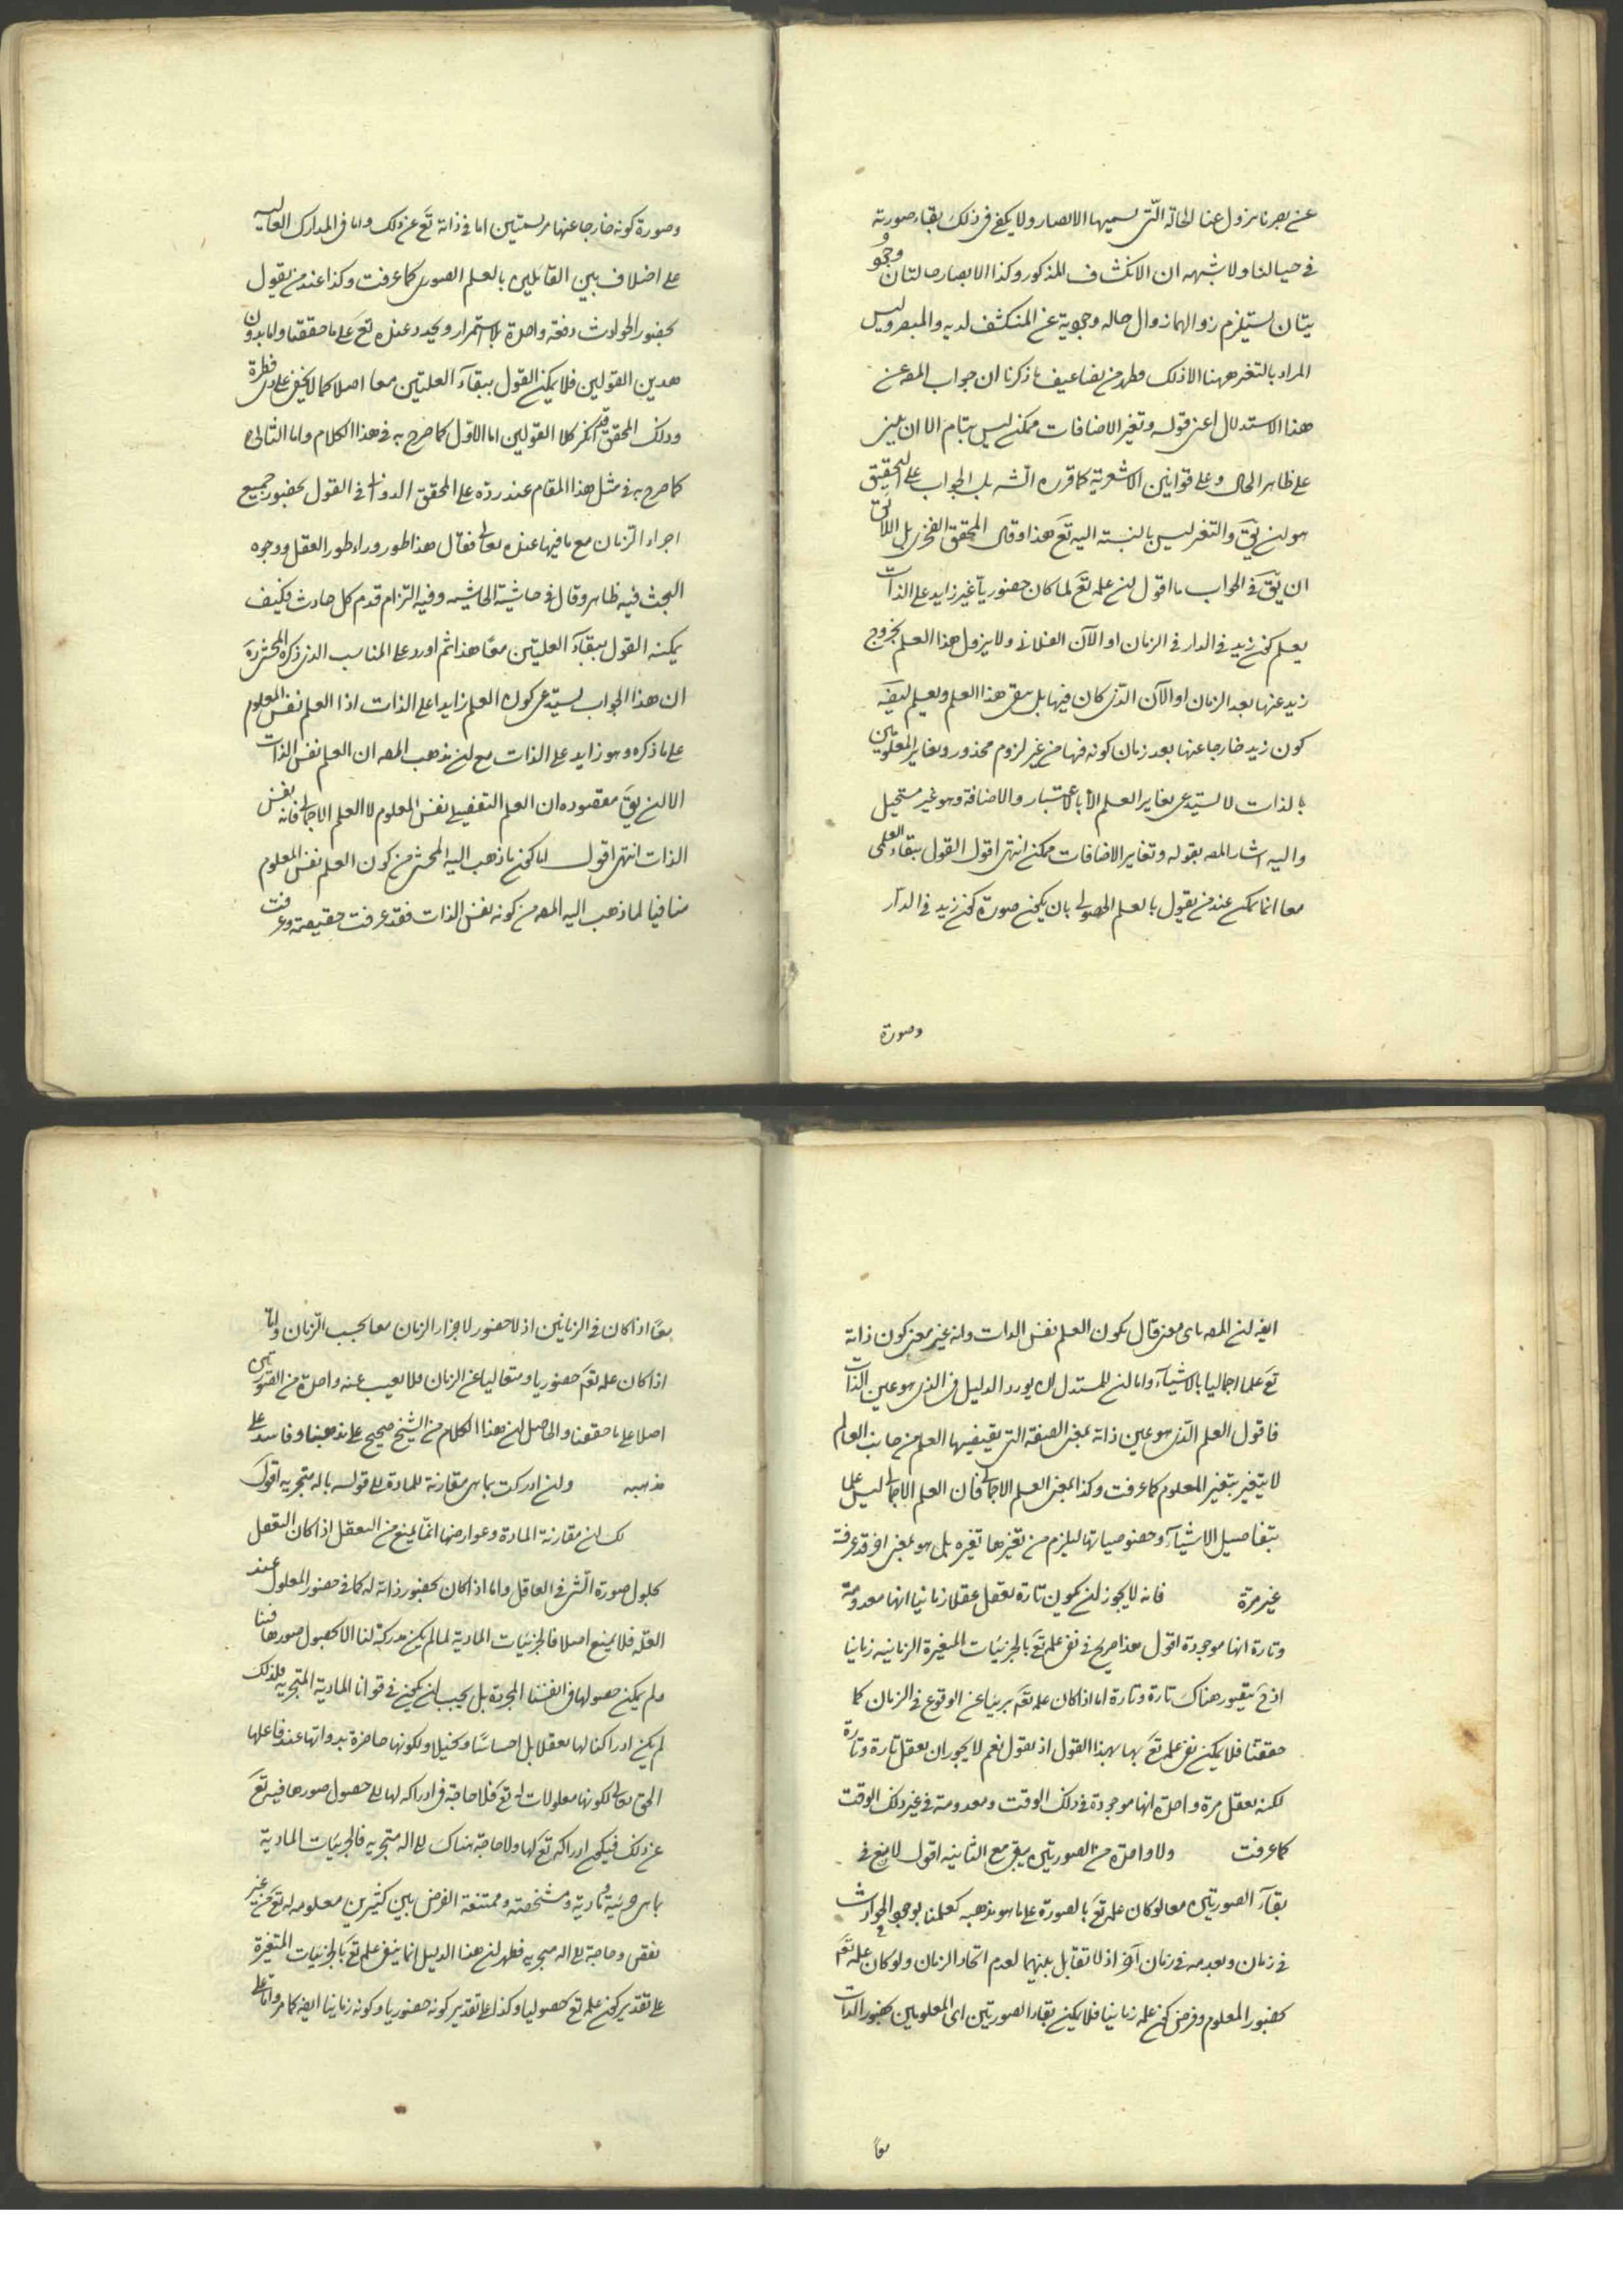 عن بصرنا يزول عنا الحالة التي نسميها الابصار ولا يكفي في ذلك بقاء صورته
في خيالنا ولا شبهه ان الانكشاف المذكور وكذا الابصار حالتان وجو
يتان يستلزم زوالهما زوال حاله وجوية عن المنكشف لديه والمبصر وليس
المراد بالتغير ههنا الا ذلك فظهر من تضاعيف ما ذكرنا ان جواب المصه عن
هذا الاستدلال اعنى قوله وتغير الاضافات ممكن ليس بتام الا ان يبنى
على ظاهر الحال وعلى قوانين الاشعرية كما قرره الشه بل الجواب على التحقيق
هو ان يق والتغير ليس بالنسبة اليه تع هذا وقال المحقق الفخرى بل اللائق
ان يق في الجواب ما اقول ان علمه تع لما كان حضوريا غير زايد على الذات
يعلم كون زيد في الدار في الزمان او الآن الفلاني ولا يزول هذا العلم بخروج
زيد عنها بعد الزمان او الآن الذي كان فيها بل يبقى هذا العلم ويعلم ايضه
كون زيد خارجا عنها بعد زمان كونه فيها من غير لزوم محذور وتغاير المعلومين
بالذات لا يستدعى تغاير العلم الا بالاعتبار والاضافة وهو غير مستحيل
واليه اشار المصه بقوله وتغاير الاضافات ممكن انتهى اقول القول ببقاء العلمى
معا انما يمكن عند من يقول بالعلم الحصولى بان يكون صورة كون زيد في الدار
وصورة
وصورة كونه خارجا عنها مرتسمتين اما في ذاته تع عن ذلك واما في المدارك العالية
على اختلاف بين القائلين بالعلم الصورى كما عرفت وكذا عند من يقول
بحضور الحوادث دفعة واحدة بلا استمرار وتجدد عنده تع على ما حققنا واما بدون
هذين القولين فلا يمكن القول ببقآء العلمين معا اصلا كما لا يخفى على ذى فطرة
وذلك المحقق قد انكر كلا القولين اما الاول كما صرح به في هذا الكلام واما الثانى
كما صرح به في مثل هذا المقام عند رده على المحقق الدوانى في القول بحضور جميع
اجزاء الزمان مع ما فيها عنده تعالى فقال هذا طور وراء طور العقل ووجوه
البحث فيه ظاهر وقال في حاشية الحاشيه وفيه التزام قدم كل حادث فكيف
يمكنه القول ببقآء العلمين معا هذا ثم اورد على المناسب الذى ذكره المحشى ره
ان هذا الجواب يستدعى كون العلم زايدا على الذات اذا العلم نفس المعلوم
على ما ذكره وهو زايد على الذات مع ان مذهب المصه ان العلم نفس الذات
الا ان يق مقصوده ان العلم التفصيلى نفس المعلوم لا العلم الاجمالى فانه نفس
الذات انتهى اقول اما كون ما ذهب اليه المحشى من كون العلم نفس المعلوم
منافيا لما ذهب اليه المصه من كونه نفس الذات فقد عرفت حقيقته وعرفت
ايضه ان المصه باى معنى قال بكون العلم نفس الذات وانه غير معنى كون ذاته
تع علما اجماليا بالاشيآء واما ان للمستدل ان يورد الدليل في الذى هو عين الذات
فاقول العلم الذى هو عين ذاته بمعنى الصفة التى يقتضيها العلم من جانب العالم
لا يتغير بتغير المعلوم كما عرفت وكذا بمعنى العلم الاجمالى فان العلم الاجمالى ليس علما
بتفاصيل الاشيآء وخصوصياتها ليلزم من تغيرها تغيره بل هو بمعنى اخر قد عرفته
غير مرة فانه لا يجوز ان يكون تارة يعقل عقلا زمانيا انها معدومة
وتارة انها موجودة اقول هذا صريح في نفى علمه تع بالجزئيات المتغيرة الزمانيه زمانيا
اذ ح يتصور هناك تارة وتارة اما اذا كان علمه تع بريئا عن الوقوع في الزمان كما
حققنا فلا يمكن نفى علمه تع بها بهذا القول اذ نقول نعم لا يجوز ان يعقل تارة وتارة
لكنه يعقل مرة واحدة انها موجودة في ذلك الوقت ومعدومة في غير ذلك الوقت
كما عرفت ولا واحدة من الصورتين يبقى مع الثانيه اقول لا منع في
بقآء الصورتين معا لو كان علمه تع بالصورة على ما هو مذهبه كعلمنا بوجود الحوادث
في زمان وبعدمه في زمان آخر اذ لا تقابل بينهما لعدم اتحاد الزمان ولو كان علمه تع
بحضور المعلوم وفرض كون علمه زمانيا فلا يمكن بقاء الصورتين اى المعلومين بحضور الذات
معاً
معاً اذا كان في الزمانين اذ لا حضور لاجزاء الزمان معا بحسب الزمان واما
اذا كان علمه تع حضوريا ومتعاليا عن الزمان فلا يغيب عنه واحدة من الصورتين
اصلا على ما حققنا والحاصل ان هذا الكلام من الشيخ صحيح على مذهبنا وفاسد على
مذهبه وان ادركت بما هى مقارنة للمادة الى قوله باله متجزيه اقول
لك ان مقارنة المادة وعوارضها انما يمنع من التعقل اذا كان التعقل
بحلول صورة الشى في العاقل واما اذا كان بحضور ذاته له كما في حضور المعلول عند
العلة فلا يمنع اصلا فالجزئيات المادية لما لم يكن مدركة لنا الا بحصول صورها فينا
ولم يمكن حصولها في انفسنا المجردة بل يجب ان يكون في قوانا المادية المتجزيه فلذلك
لم يكن ادراكنا لها تعقلا بل احساسا وتخيلا ولكونها حاضرة بذواتها عند فاعلها
الحق تعالى لكونها معلولات له تع فلا حاجة في ادراكه لها الى حصول صورها فيه تع
عن ذلك فيكون ادراكه تع لها ولا حاجة هناك الى اله متجزيه فالجزئيات المادية
بما هى جزئية ومادية ومشخصة وممتنعة الفرض بين كثيرين معلومه له تع من غير
نقص وحاجة الى اله متجزيه فظهر ان هذا الدليل انما ينفى علمه تع بالجزئيات المتغيرة
على تقدير كون علمه تع حصوليا وكذا على تقدير كونه حضوريا وكونه زمانيا ايضه كما مر واما على